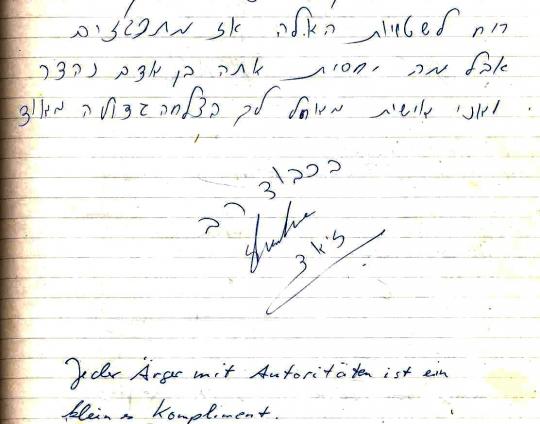 רוח לשטויות האלה אז מתפגזים
אבל מה יחסית אתה בן אדם נהדר
ואני אישית מאחל לך הצלחה גדולה מאוד.
בכבוד רב
ליאד
Jeder Ärger mit Autoritäten ist ein
kleines Kompliment.